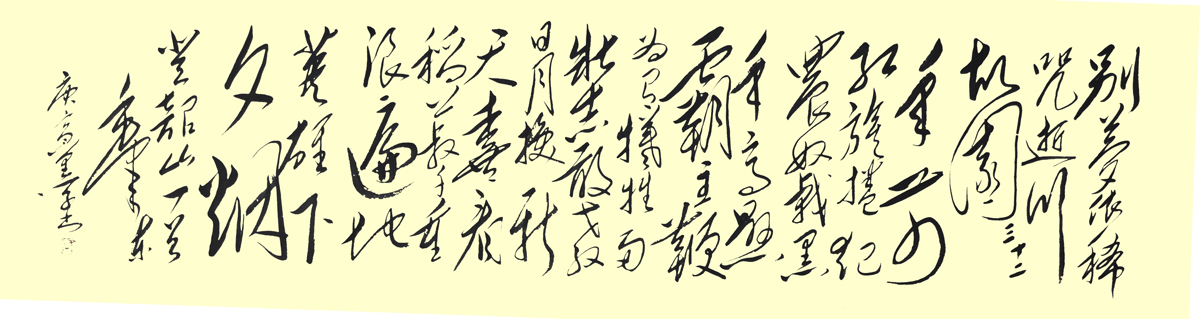 别梦依稀
咒逝川
故园三十二
年前
红旗捲起
農奴戟黑
手高懸
霸主鞭
为有犧牲多
壮志敢教
日月换新
天喜看
稻菽千重
浪遍地
英雄下
夕烟
登韶山一首
毛泽东